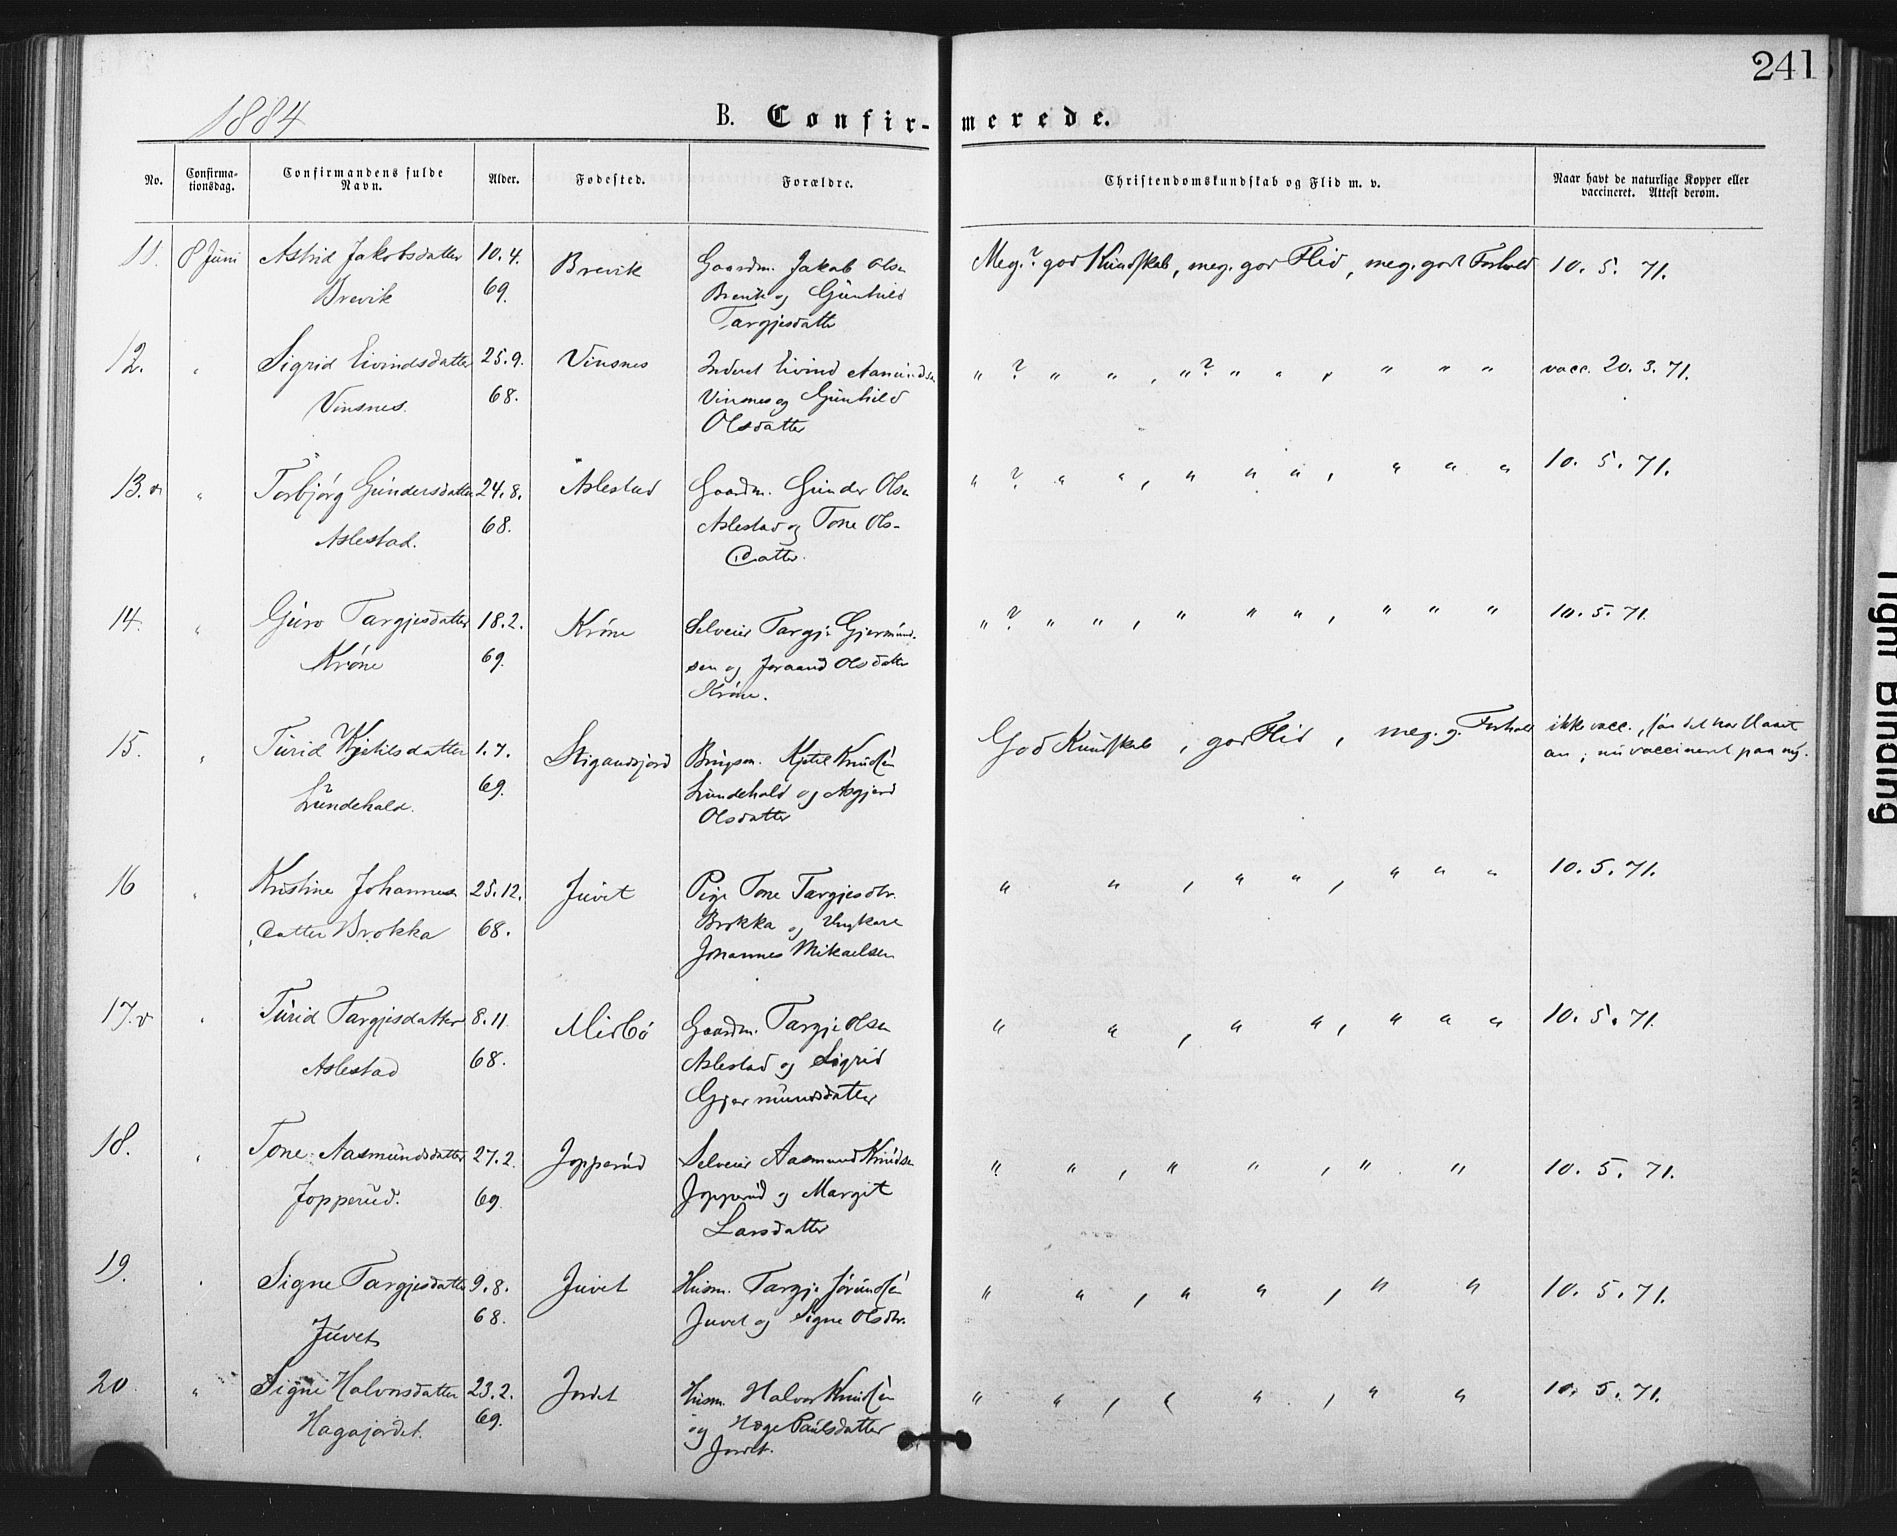 241
1884
B. Confir-merede.
No.
Confirma-
tionsdag.
Confirmandens fulde
Navn.
Alder.
Fødested.
Forældre.
Christendomskundskab og Flid m. v.
Naar havt de naturlige Kopper eller
vaccineret. Attest derom.
11. 8 Juni Astrid Jakobsdatter 10.4. Brevik Gaardm. Jakob Olsen Meg.? god Kundskab, meg. god Flid, meg. godt Forhold 10. 5. 71.
Brevik 69. Brevik og Gunhild
Targjesdatter
12. " Sigrid Eivindsdatter 25.9. Vinsnes Inderst Eivind Aamundsen " ? " " , " ? " " , " " " vacc. 20. 3. 71.
Vinsnes. 68. Vinsnes og Gunhild
Olsdatter
13. v " Torbjørg Gundersdatter 24.8. Aslestad Gaardm. Gunder Olsen " ? " " , " " " , " " " 10. 5. 71.
Aslestad. 68. Aslestad og Tone Ols-
datter.
14. " Guro Targjesdatter 18.2. Krône Selveier Targje Gjermund- " ? " " , " " " , " " " 10. 5. 71.
Krône 69. sen og Joraand Olsdatter
Krône.
15. " Turid Kjetilsdatter 1.7. Stigandsjord Brugsm. Kjetil Knudsen God Kundskab, god Flid, meg. g. Forhold ikke vacc., før det har slaaet
Lundehald. 69. Lundehald og Asgjerd an; nu vaccineret paa ny.
Olsdatter
16 " Kristine Johannes- 25.12. Juvet Pige Tone Targjesdtr. " " , " " , " " " 10. 5. 71.
datter Brokka 68. Brokka og Ungkarl
Johannes Mikaelsen
17. v " Turid Targjesdatter 8.11. Midbö Gaardm. Targje Olsen " " , " " , " " " 10. 5. 71.
Aslestad 68. Aslestad og Sigrid
Gjermundsdatter
18. " Tone Aasmundsdatter 27.2. Jopperud Selveier Aasmund Knudsen " " , " " , " " 10. 5. 71.
Jopperud. 69. Jopperud og Margit
Larsdatter
19. " Signe Targjesdatter 9.8. Juvet Husm. Targje Jørundsen " " , " " , " " 10. 5. 71.
Juvet 68. Juvet og Signe Olsdtr.
20 " Signe Halvorsdatter 23.2. Jordet Husm. Halvor Knudsen " " , " " , " " 10. 5. 71.
Hagajordet. 69. og Hæge Paulsdatter
Jordet.
Tight Binding